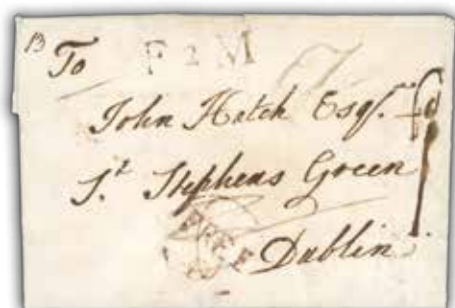 13
To F 2 M
John Hatch Esqr.
St. Stephens Green
FREE
Dublin